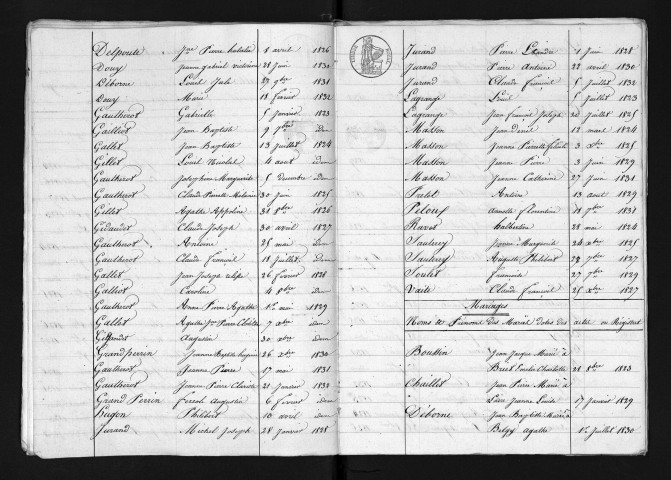 Delpoute Jne Pierre 8 avril 1826
Douy Jeanne gabriel victorine 28 Juin 1830
Déborne Louise Julie 29 9bre 1831
Douy Marie 18 fevrier 1832
Gaultherot Gabrielle 5 Janvier 1823
Gaulliot Jean Baptiste 9 idem
Gallet Jean Baptiste 13 Juillet 1824
Gillet Louise Nicolas 4 aout idem
Gaultherot Josephine Marguerite 5 Decembre idem
Gaultherot Claude Pierrette Melanie 30 Juin 1825
Gillet Agathe Appoline 31 8bre 1826
Gidaudet Claude Joseph 30 avril 1827
Gaultherot Antoine 25 mai idem
Gaultherot Claude François 18 Juillet idem
Gallet Jean Joseph 26 fevrier 1828
Galliot Caroline 4 8bre idem
Gaultherot Anne Pierre Agathe 1er mai 1829
Gallet Agathe Jne Pierre Clotilde 7 xbre idem
Augustin 30 xbre idem
Grand perrin Jeanne Baptiste 26 xbre 1830
Gaultherot Jeanne Pierre 17 mai 1831
Gaultherot Jeanne Pierre Christine 21 Janvier 1832
Grand Perrin Augustin 6 fevrier idem
Hugon Philibert 10 avril idem
Jurand Michel Joseph 28 Janvier 1828
Jurand Pierre 1 Juin 1828
Jurand Pierre Antoine 22 avril 1830
Jurand Claude François 5 Juillet 1832
Lagrange Louise 5 Juillet 1823
Lagrange Jean francois Joseph 20 Juillet 1825
Masson Jean Denis 12 mars 1824
Masson Jeanne Pierrette 3 xbre 1825
Masson Jeanne Pierre 3 Juin 1829
Masson Jeanne Catherine 27 Juin 1831
Pralet Antoine 13 aout 1829
Pelous Annette florentine 18 9bre 1831
Ravot 28 mai 1824
Saulcey Jeanne Marguerite 24 xbre 1825
Saulcey Auguste Philibert 29 7bre 1827
Soulet francois 27 7bre 1829
Vaite Claude François 25 xbre 1827
Mariages
Noms & Prenoms des Mariés dates des actes en Registres
Boussin Jean Jacques Marié à
Charlotte 21 8bre 1823
Chaillet Jean Pierre Marié à
Jeanne Louise 17 Janvier 1829
Déborne Jean Baptiste Marié à
Belgy Agathe 1er Juillet 1830